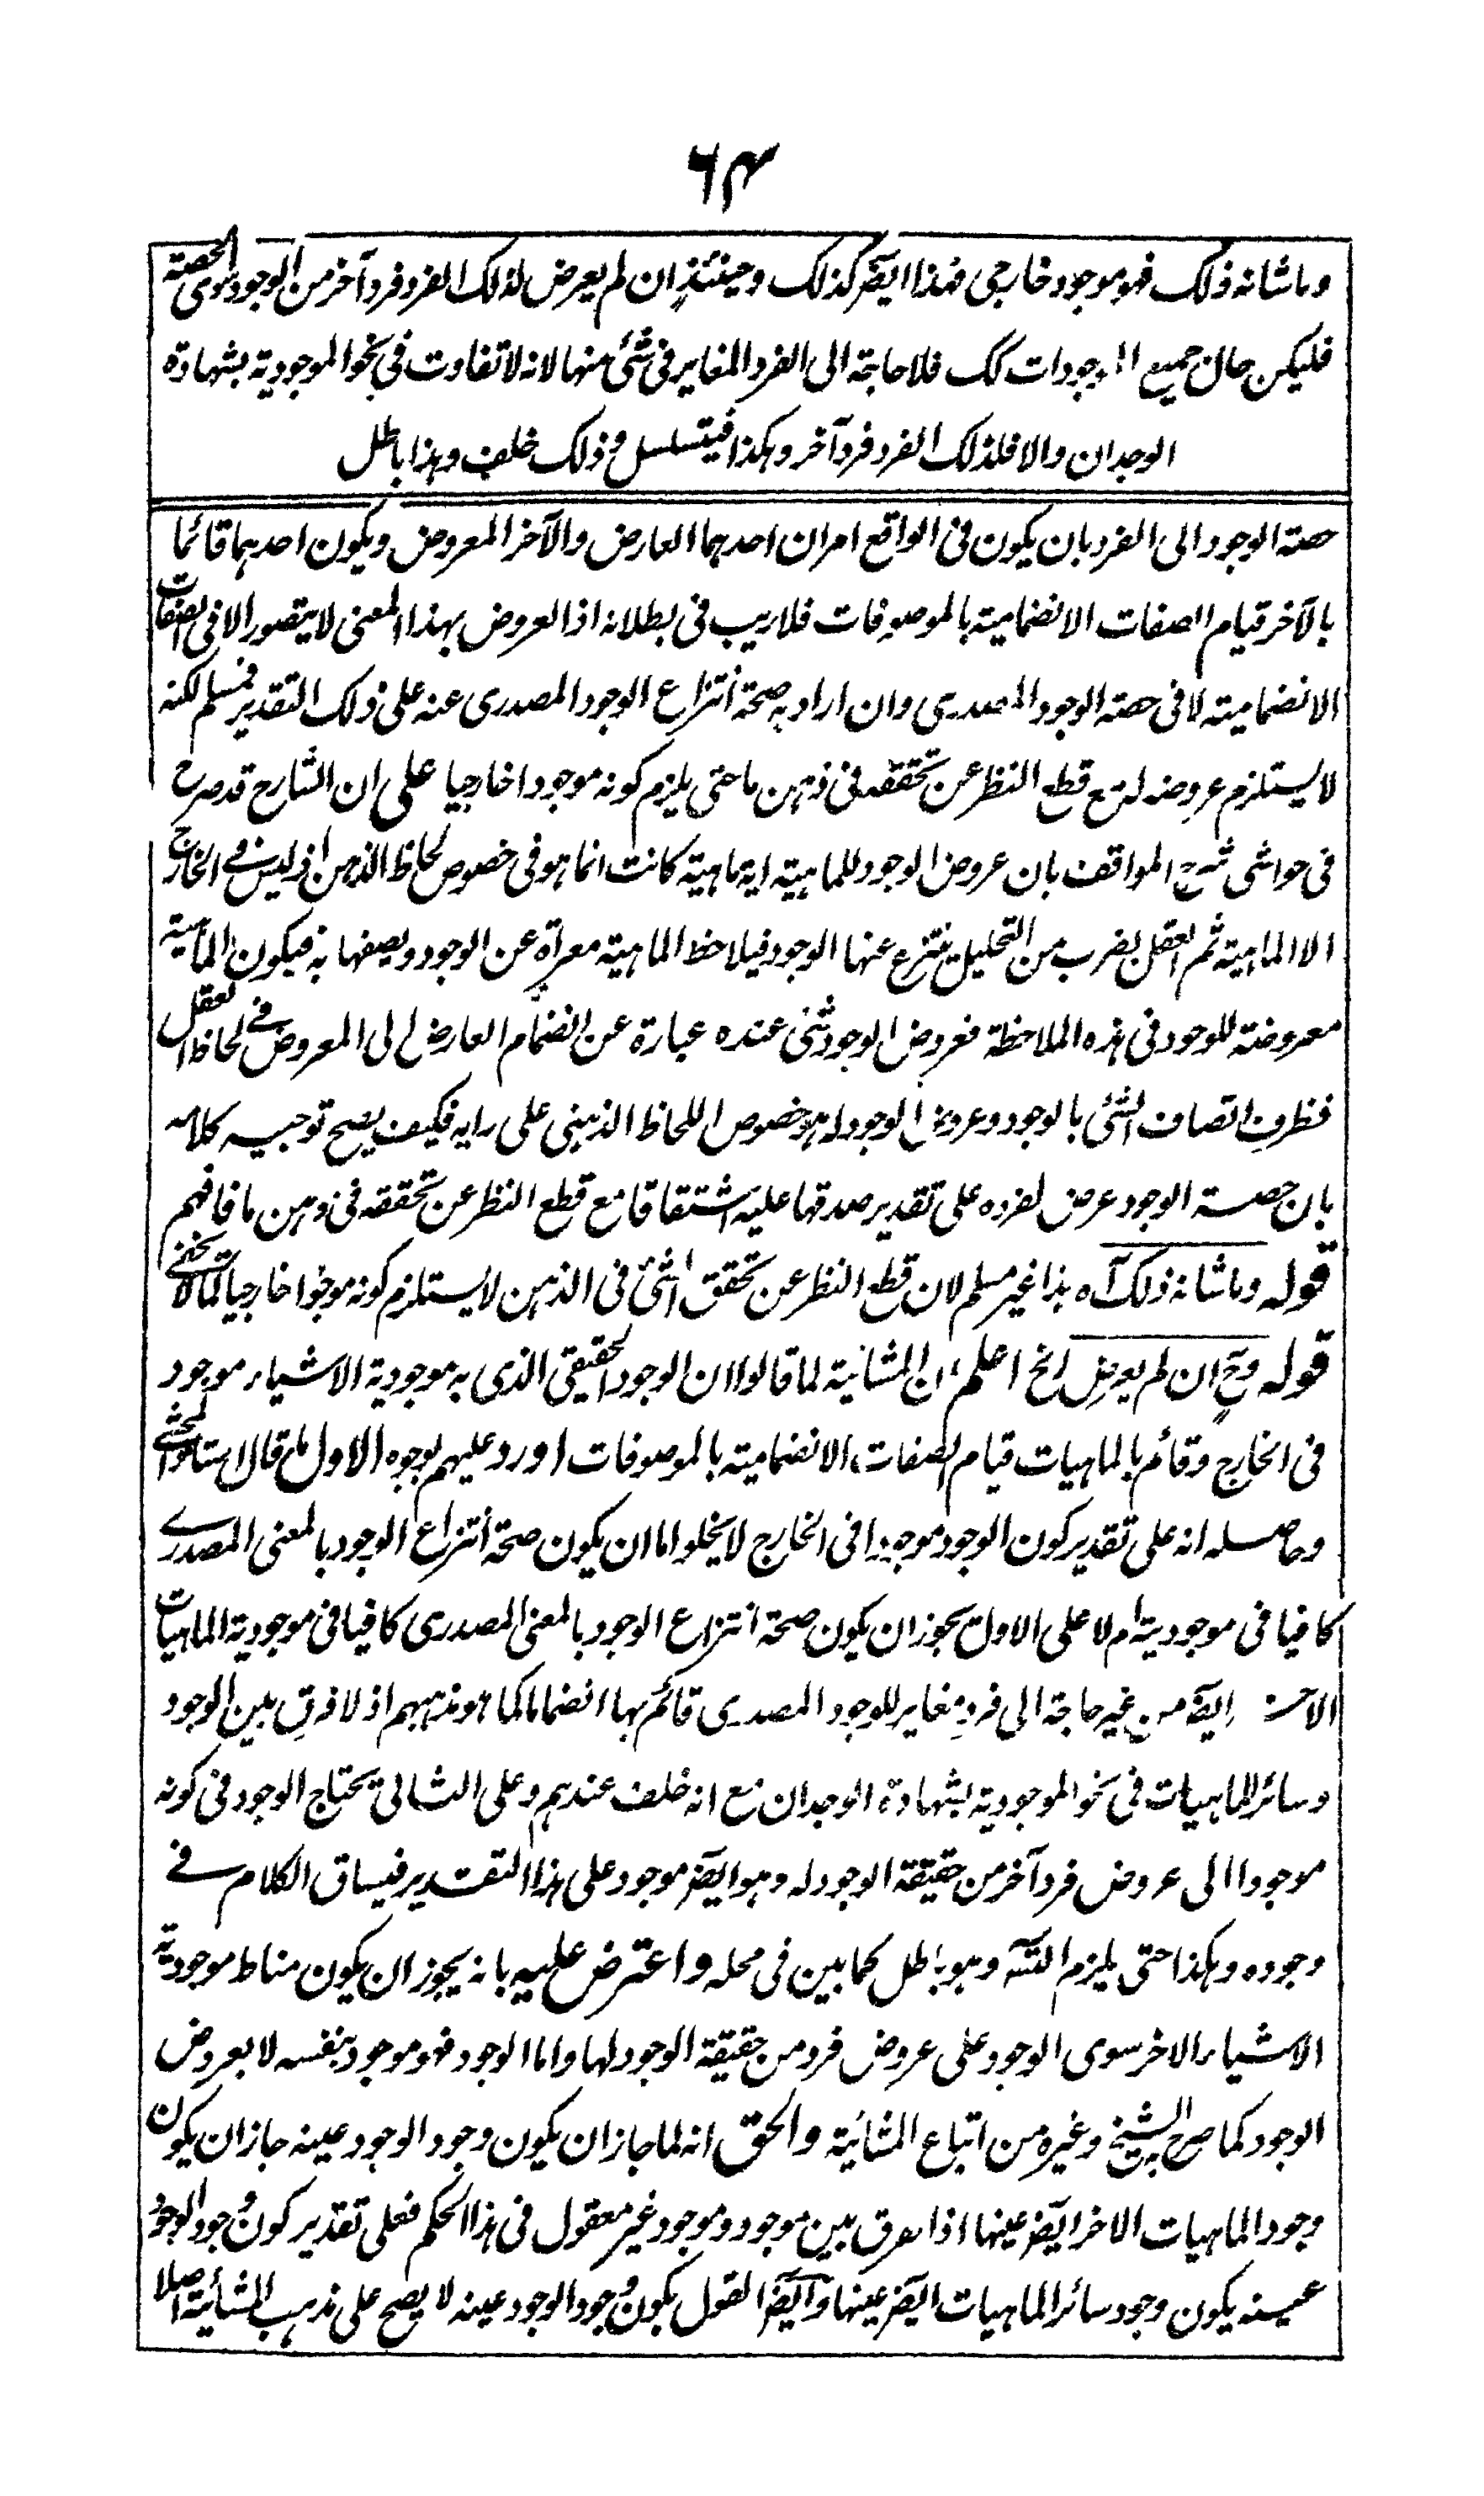 ۶۴
وما شانه ذلك فهو موجود خارجى فهذا ايضًا كذلك وحينئذٍ ان لم يعرض لذلك الفرد فرد آخر من الوجود سوى الحصة
فليكن حال جميع الموجودات كك فلا حاجة الى الفرد المغاير فى شئ منها لانه لا تفاوت فى نحو الموجودية بشهادة
الوجدان والا فلذلك الفرد فرد آخر وهكذا فيتسلسل وذلك خلف وهذا باطل
حصة الوجود الى الفرد بان يكون فى الواقع امران احدهما العارض والآخر المعروض ويكون احدهما قائما
بالآخر قيام الصفات الانضمامية بالموصوفات فلا ريب فى بطلانه اذ العروض بهذا المعنى لا يتصور الا فى الصفات
الانضمامية لا فى حصة الوجود المصدرى وان اراد به صحة انتزاع الوجود المصدرى عنه على ذلك التقدير فمسلم لكنه
لا يستلزم عروضه له مع قطع النظر عن تحققه فى ذهن ما حتى يلزم كونه موجودا خارجيا على ان الشارح قد صرح
فى حواشى شرح المواقف بان عروض الوجود للماهية اية ماهية كانت انما هو فى خصوص لحاظ الذهن اذ ليس فى الخارج
الا الماهية ثم العقل بضرب من التحليل ينتزع عنها الوجود فيلاحظ الماهية معراة عن الوجود ويصفها به فيكون الماهية
معروضة للوجود فى هذه الملاحظة فعروض الوجود لشئ عنده عبارة عن انضمام العارض الى المعروض فى لحاظ العقل
فظرف اتصاف الشئ بالوجود وعروض الوجود له هو خصوص اللحاظ الذهنى على رايه فكيف يصح توجيه كلامه
بان حصة الوجود عرض لفرده على تقدير صدقها عليه اشتقاقا مع قطع النظر عن تحققه فى ذهن ما فافهم
قوله وما شانه ذلك آه هذا غير مسلم لان قطع النظر عن تحقق الشئ فى الذهن لا يستلزم كونه موجودا خارجيا كما لا يخفى
قوله وحٍ ان لم يعرض الخ اعلم ان المشائية لما قالوا ان الوجود الحقيقى الذى به موجودية الاشياء موجود
فى الخارج وقائم بالماهيات قيام الصفات الانضمامية بالموصوفات اورد عليهم بوجوه الاول ما قال استاذ المحشى
وحاصله انه على تقدير كون الوجود موجودا فى الخارج لا يخلو اما ان يكون صحة انتزاع الوجود بالمعنى المصدرى
كافيا فى موجوديته ام لا على الاول يجوز ان يكون صحة انتزاع الوجود بالمعنى المصدرى كافيا فى موجودية الماهيات
الاخر ايضًا من غير حاجة الى فرد مغاير للوجود المصدرى قائم بها انضماما كما هو مذهبهم اذ لا فرق بين الوجود
وسائر الماهيات فى نحو الموجودية بشهادة الوجدان مع انه خلف عندهم وعلى الثانى يحتاج الوجود فى كونه
موجودا الى عروض فرد آخر من حقيقة الوجود له وهو ايضًا موجود على هذا التقدير فيساق الكلام فى
وجوده وهكذا حتى يلزم التسَّ وهو باطل كما بين فى محله واعترض عليه بانه يجوز ان يكون مناط موجودية
الاشياء الاخر سوى الوجود على عروض فرد من حقيقة الوجود لها واما الوجود فهو موجود بنفسه لا بعروض
الوجود كما صرح به الشيخ وغيره من اتباع المشائية والحق انه لما جاز ان يكون وجود الوجود عينه جاز ان يكون
وجود الماهيات الاخر ايضًا عينها اذ الفرق بين موجود وموجود غير معقول فى هذا الحكم فعلى تقدير كون وجود الوجود
عينه يكون وجود سائر الماهيات ايضًا عينها وايضًا القول بكون وجود الوجود عينه لا يصح على مذهب المشائية اصلا